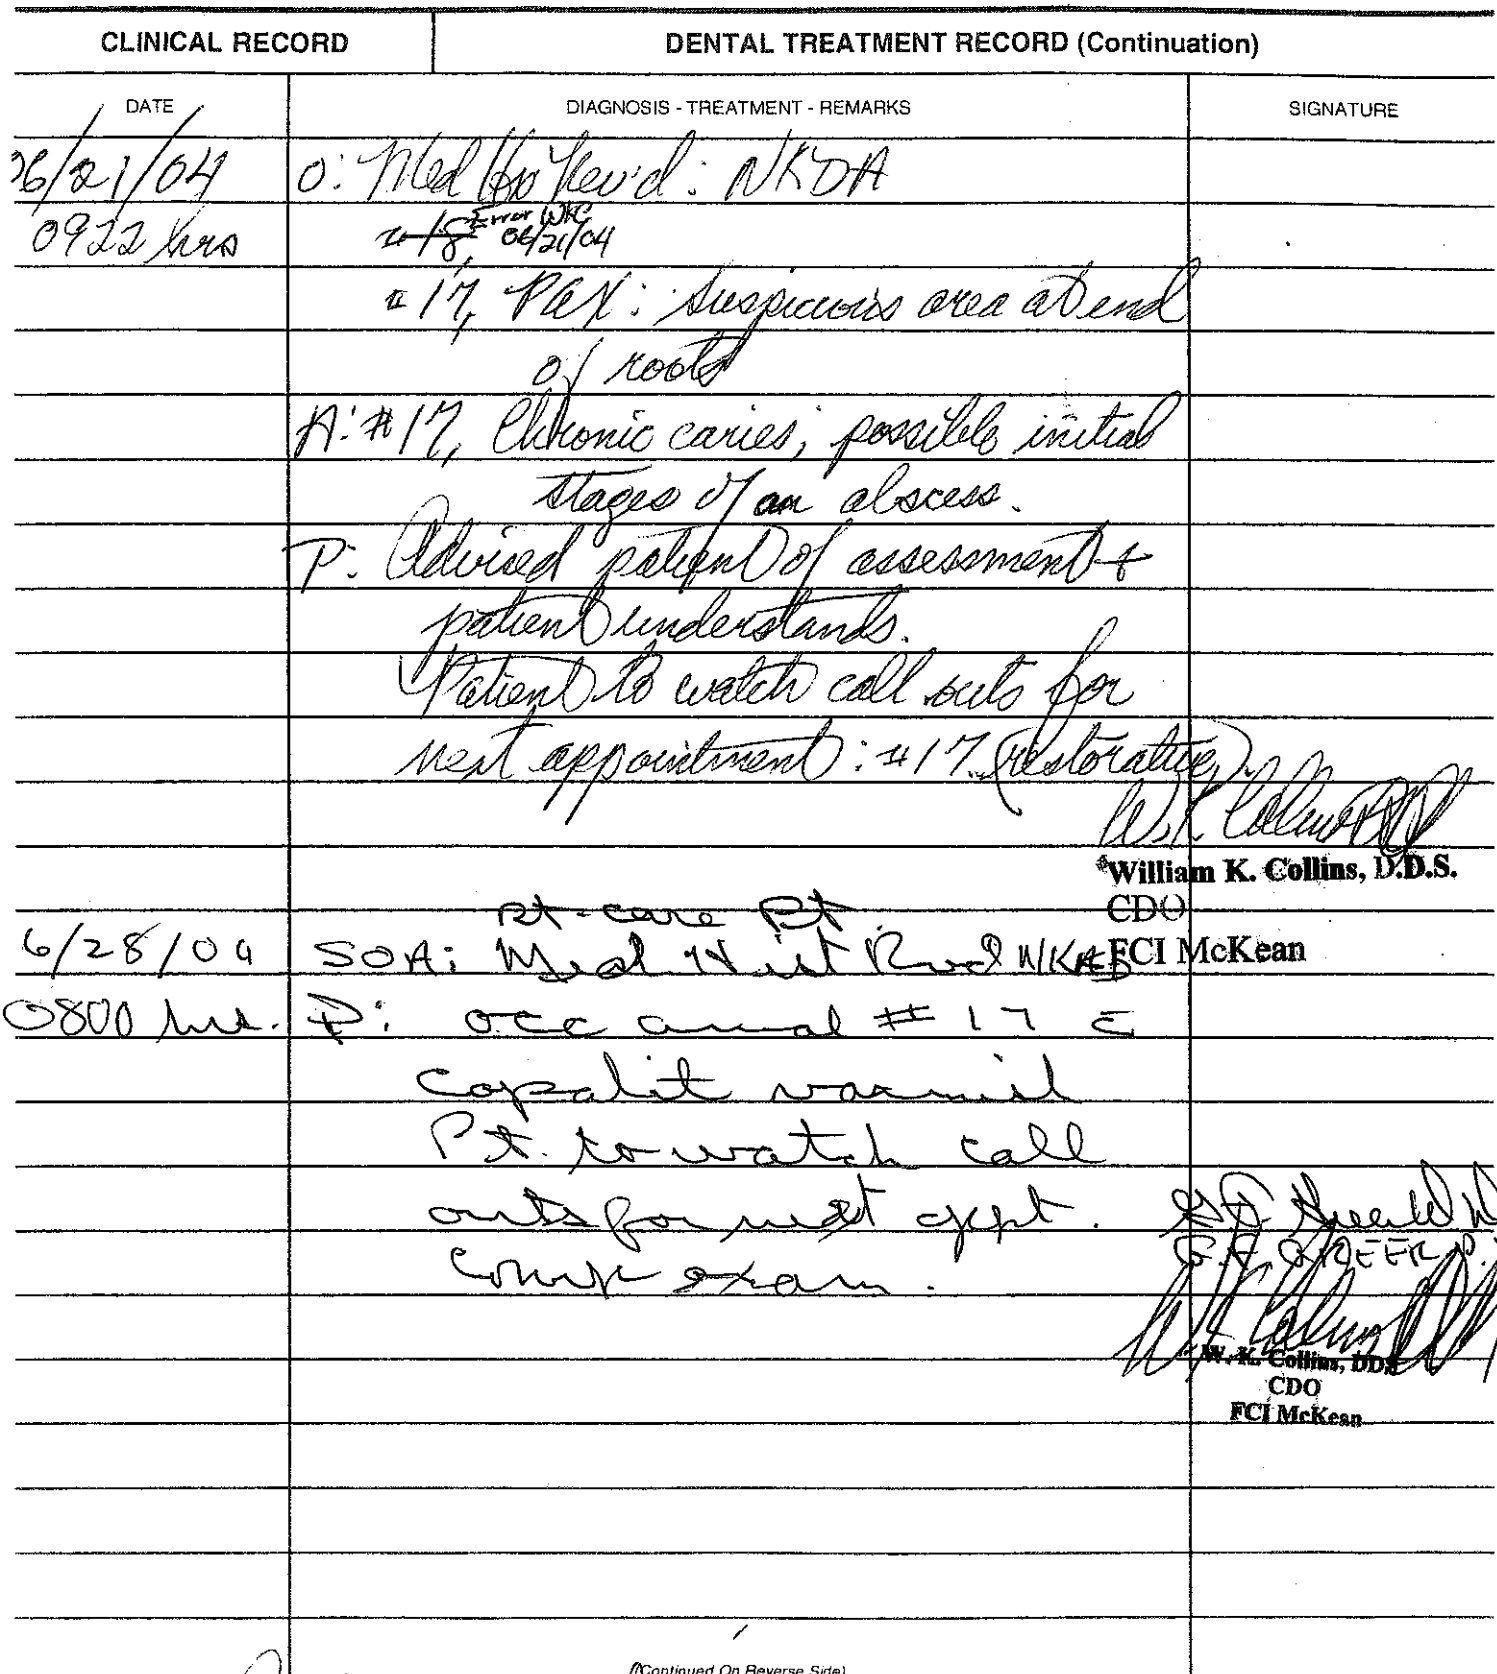 CLINICAL RECORD DENTAL TREATMENT RECORD (Continuation)
DATE DIAGNOSIS - TREATMENT - REMARKS SIGNATURE
06/21/04 O: Med Hx Rev'd: NKDA
0922 hrs #18, Error WKC 06/21/04
#17, PAX: Suspicious area at end
of roots
A: #17, Chronic caries; possible initial
stages of an abscess.
P: Advised patient of assessment &
patient understands.
Patient to watch call outs for
next appointment: #17 (restorative).
W.K. Collins DDS
William K. Collins, D.D.S.
CDO
pt-care Pt.
6/28/04 SOA: Med Hist Rvd NKAD FCI McKean
0800 hrs. P: occ amal #17 c
copalit varnish
Pt. to watch call
outs for next appt.
G.F. GREER D.
comp exam.
W.K. Collins DDS
W. K. Collins, DDS
CDO
FCI McKean
(Continued On Reverse Side)